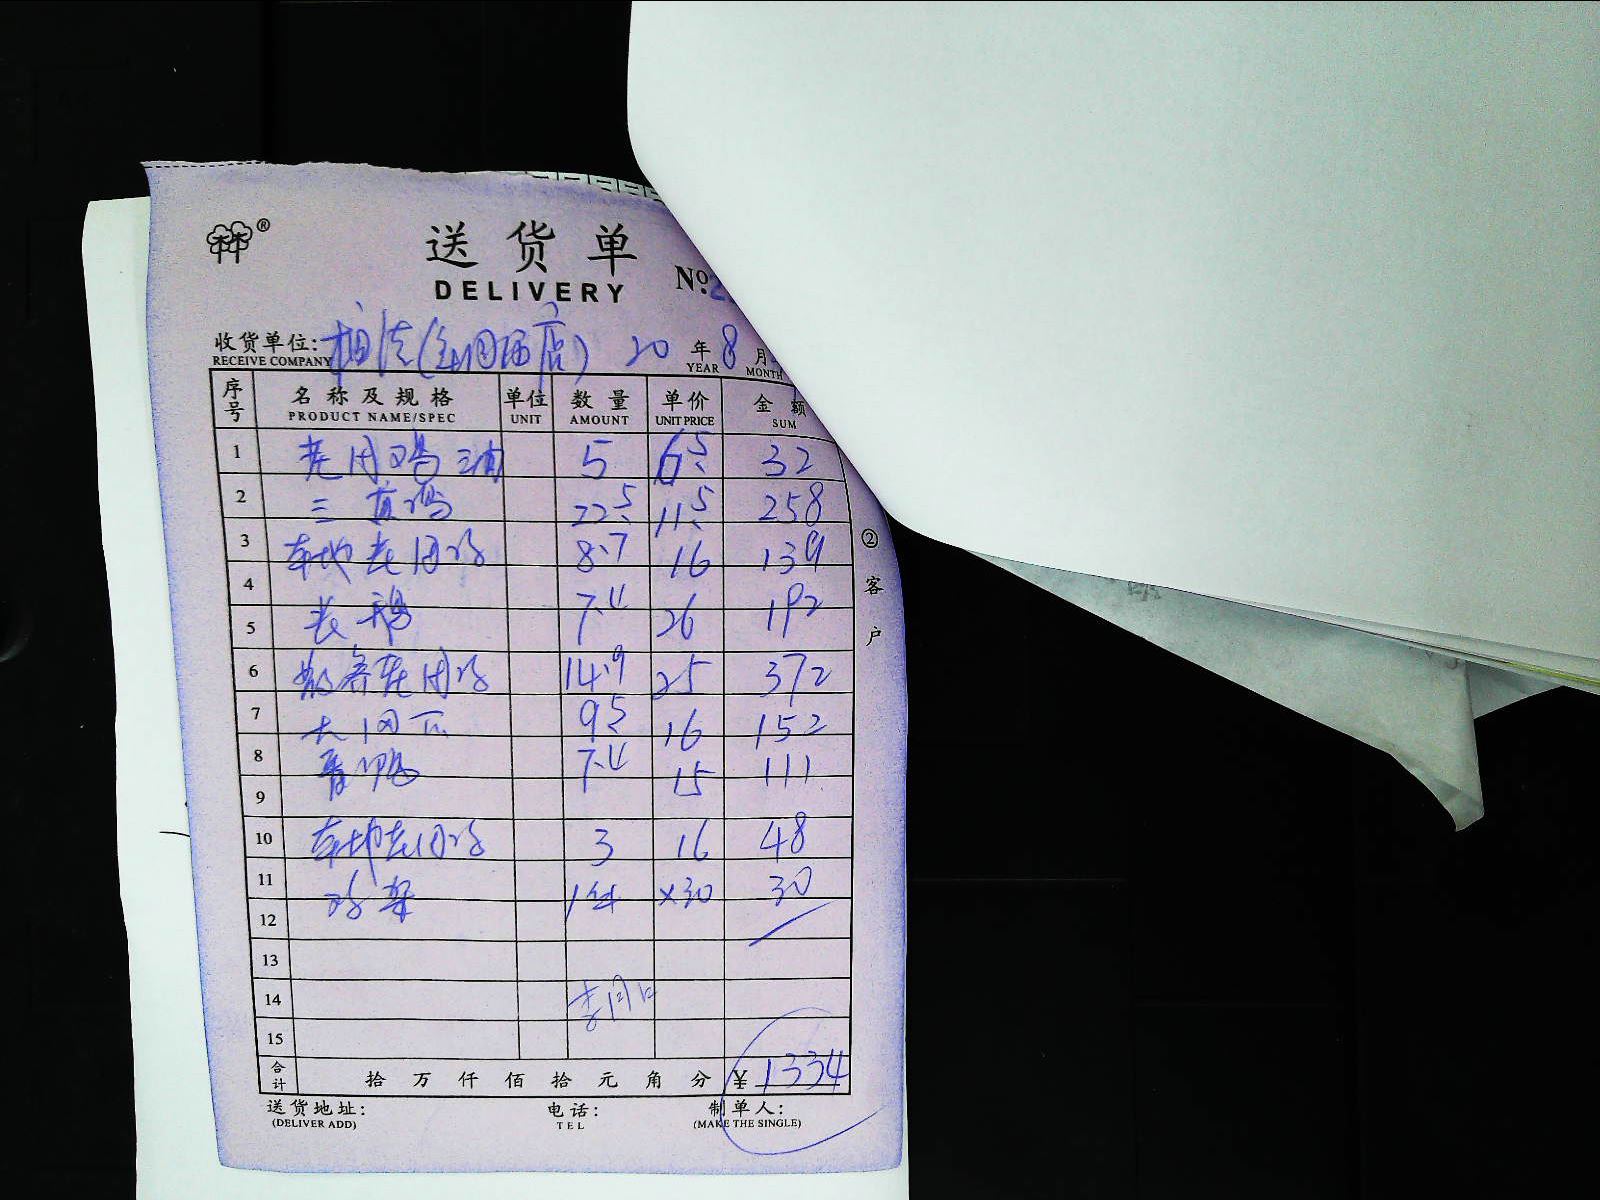 ®
送货单
DELIVERY
№2
收货单位: 20 年 8 月
RECEIVE COMPANY YEAR MONTH
序号 名称及规格 单位 数量 单价 金额
PRODUCT NAME/SPEC UNIT AMOUNT UNIT PRICE SUM
1 老阉鸡 5 6.5 32
2 三黄鸡 22.5 11.5 258
3 本地老阉鸡 8.7 16 139
4
5 老鸡 7.4 26 192
6 散养老阉鸡 14.9 25 372
7 9.5 16 152
8 青鸭 7.4 15 111
9
10 本地老阉鸡 3 16 48
11 鸡架 1件 ×30 30
12
13
14
15
合计 拾 万 仟 佰 拾 元 角 分 ¥ 1334
送货地址: 电话: 制单人:
(DELIVER ADD) TEL (MAKE THE SINGLE)
②客户